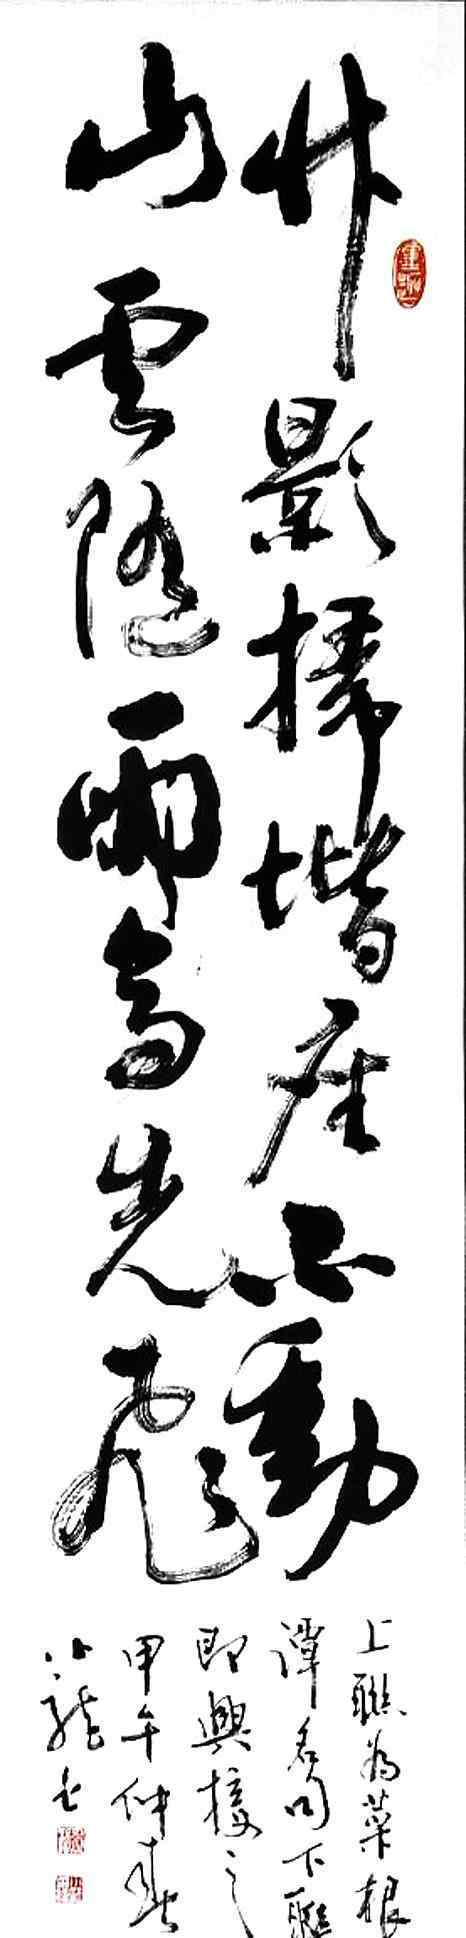 竹影掃堦塵不動
山雲隨雨鳥先飛
上聯為菜根
譚名句下聯
即興接之
甲午仲春